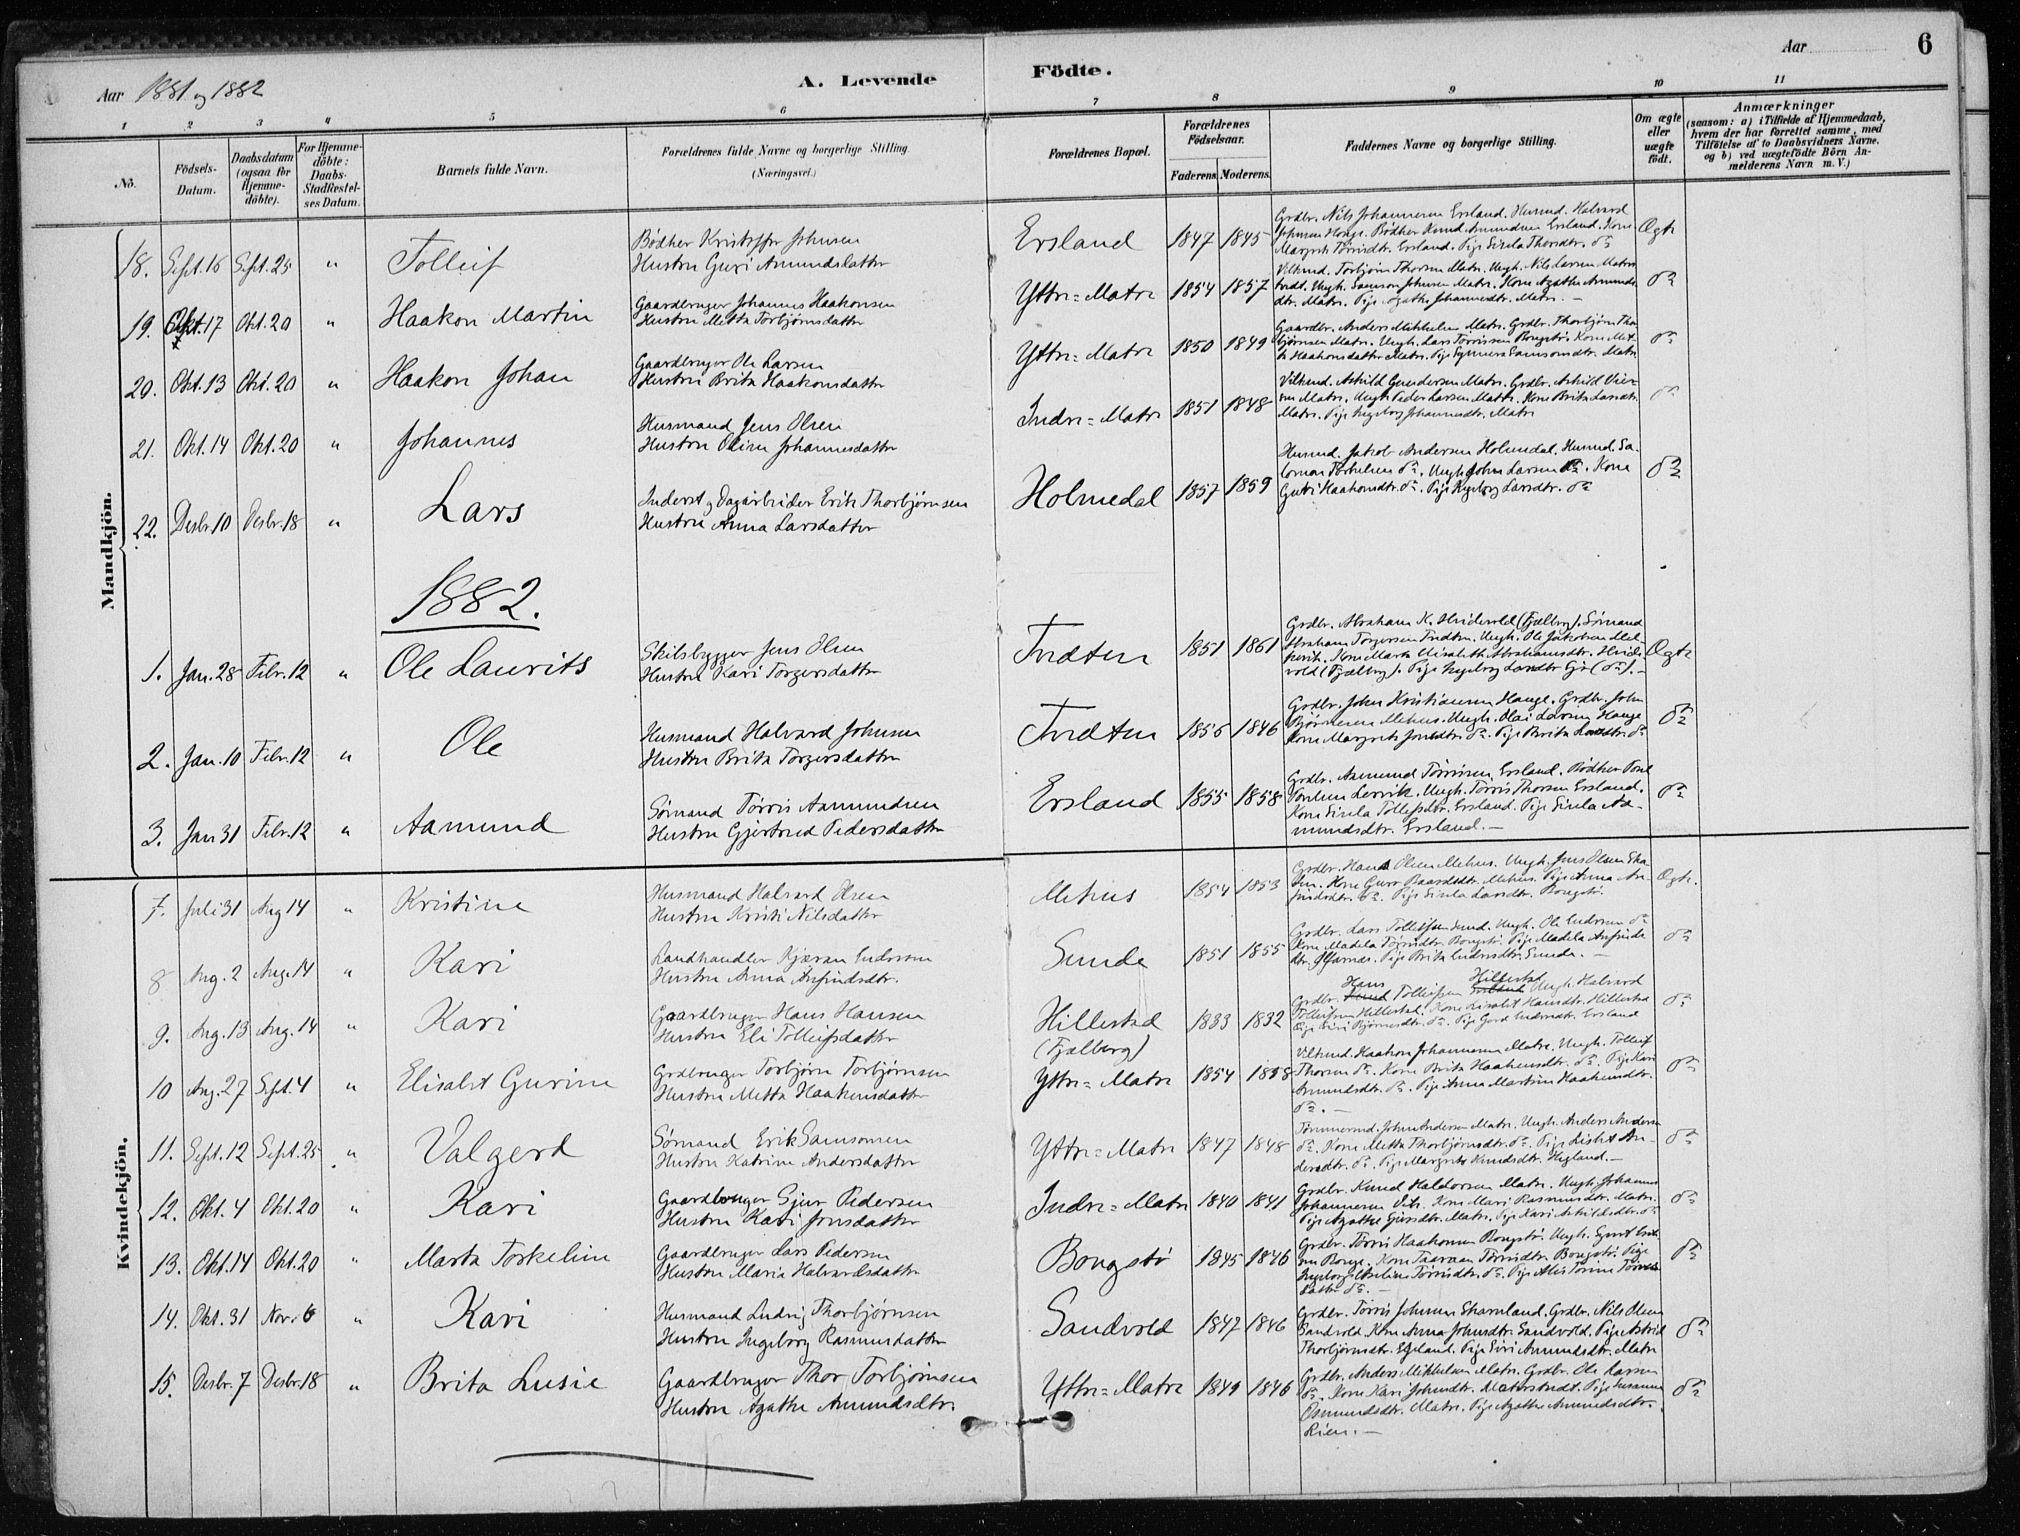 Aar 1881 og 1882
A. Levende Födte.
Aar 6
1 2 3 4 5 6 7 8 9 10 11
No.
Födsels-Datum.
Daabsdatum (ogsaa for Hjemme-döbte).
For Hjemme-döbte: Daabs-Stadfæstel-ses Datum.
Barnets fulde Navn.
Forældrenes fulde Navne og borgerlige Stilling. (Næringsvei.)
Forældrenes Bopæl.
Forældrenes Födselsaar.
Faderens. Moderens.
Faddernes Navne og borgerlige Stilling.
Om ægte eller uægte födt.
Anmærkninger
(saasom: a) i Tilfælde af Hjemmedaab, hvem der har forrettet samme, med Tilföielse af to Daabsvidners Navne, og b) ved uægtefödte Börn An-melderens Navn m. V.)
Mandkjön.
18. Sept. 16 Sept. 25 " Tolleif
Bødker Kristoffer Johnsen
Hustru Guri Amundsdatter
Ersland 1847 1845
Grdbr. Nils Johannesen Ersland. Husmd. Halvard
Johnsen Hauge. Bødker Knud Amundsen Ersland. Kone
Margrete Tørrisdtr. Ersland. Pige Sirila Thorsdtr. do
Ægte
19. Okt. 17 Okt. 20 " Haakon Martin
Gaardbruger Johannes Haakonsen
Hustru Metta Torbjørnsdatter
Yttre=Matre 1854 1857
Torbjørn Thorsen Matre. Ungk. Nils Larsen
Ungk. Samson Johnsen Matre. Kone Agathe Amunds-
dtr. Matre. Pige Agathe Johannesdtr. Matre. —
do
20. Okt. 13 Okt. 20 " Haakon Johan
Gaardbruger Ole Larsen
Hustru Brita Haakonsdatter
Yttre=Matre 1850 1849
Gaardbr. Anders Mikkelsen Matre. Grdbr. Thorbjørn Thor-
bjørnsen Matre. Ungk. Lars Tørrissen Bongstø. Kone Met-
ta Haakonsdatter Matre. Pige Synneva Samsonsdtr. Matre
do
21. Okt. 14 Okt. 20 " Johannes
Husmand Jens Olsen
Hustru Oline Johannesdatter
Indre=Matre 1851 1848
Askild Gundersen Matre. Grdbr. Askild
Matre. Ungk. Peder Larsen Matre. Kone Brita Larsdtr.
Matre. Pige Ingeborg Johannesdtr. Matre
do
22. Desbr. 10 Desbr. 18 " Lars
Inderst og Dagarbeider Erik Thorbjørnsen
Hustru Anna Larsdatter
Holmedal 1857 1859
Husmd. Jakob Andersen Holmedal. Husmd. Sa-
lomon Torkelsen do. Ungk. John Larsen do. Kone
Guri Haakonsdtr. do. Pige Ingeborg Larsdtr. do
do
1882.
1. Jan. 28 Febr. 12 " Ole Laurits
Skibsbygger Jens Olsen
Hustru Kari Torgersdatter
Tredten 1851 1861
Grdbr. Abraham K. Hvidevold (Fjælberg). Sømand
Abraham Torgersen Tredten. Ungk. Ole Jakobsen
Kone Marta Elisabeth Abrahamsdtr. Hvide-
vold (Fjælberg). Pige Ingeborg (do). —
Ægte
2. Jan. 10 Febr. 12 " Ole
Husmand Halvard Johnsen
Hustru Brita Torgersdatter
Tredten 1856 1846
Grdbr. John Kristiansen Hauge. Grdbr. John
Bjørnesen Mehus. Ungk. Olai Larsen Hauge
Kone Margrete do. Pige Brita do
do
3. Jan. 31 Febr. 12 " Aamund
Sømand Tørris Aamundsen
Hustru Gjertrud Pedersdatter
Ersland 1855 1858
Grdbr. Aamund Tørrissen Ersland. Bødker Poul
Poulsen Lervik. Ungk. Tørris Thorsen Ersland.
Kone Sirila Tolleifsdtr. Ersland. Pige Sirila Aa-
mundsdtr. Ersland. —
do
Kvindekjön.
7. Juli 31 Aug. 14 " Kristine
Husmand Halvard Olsen
Hustru Kristi Nilsdatter
Mehus 1854 1853
Grdbr. Hans Olsen Mehus. Ungk. Jens Olsen
Kone Guro Baardsdtr. Mehus. Pige Anna An-
findsdtr. do. Pige Sirila Larsdtr. Bongstø.
Ægte.
8 Aug. 2 Aug. 14 " Kari
Landhandler Kjæran Endresen
Hustru Anna Anfindsdtr.
Sunde 1851 1855
Grdbr. Lars Tolleifsen Sund. Ungk. Ole Endresen do
Kone Madela Tørrisdtr. Bongstø. Pige Madela Anfinds-
dtr. Pige Brita Endresdtr. Sunde. —
do
9. Aug. 13 Aug. 14 " Kari
Gaardbruger Hans Hansen
Hustru Eli Tolleifsdatter
Hillestad (Fjælberg) 1833 1832
Hans Hillestad
Grdbr. Tolleifsen Ungk. Halvard
Tolleifsen Hillestad. Kone Lisabet Hansdtr. Hillestad
Pige Siri Bjørnesdtr. do. Pige Gard Endresdtr. Ersland
do
10 Aug. 27 Sept. 4 " Elisabet Gurine
Grdbruger Torbjørn Torbjørnsen
Hustru Metta Haakonsdatter
Yttre=Matre 1854 1858
Haakon Johannesen Matre. Ungk. Tolleif
Thorsen do. Kone Brita Haakonsdtr. do. Pige Kari
Amundsdtr. do. Pige Anna Martine Haakonsdtr.
do. —
do
11. Sept. 12 Sept. 25 " Valgerd
Sømand Erik Samsonsen
Hustru Katrine Andersdatter
Yttre=Matre 1847 1848
Tømmermd. John Andersen Matre. Ungk. Anders Andersen
do. Kone Metta Thorbjørnsdtr. do. Pige Lisbet An-
dersdtr. do. Pige Margrete Knudsdtr. Høgland. —
do
12. Okt. 4 Okt. 20 " Kari
Gaardbruger Sjur Pedersen
Hustru Kari Jonsdatter
Indre=Matre 1840 1841
Grdbr. Knud Haldorsen Matre. Ungk. Johannes
Johannesen Vik. Kone Mari Rasmusdtr. Matre.
Pige Agathe Matre. Pige Kari Askildsdtr. do
do
13. Okt. 14 Okt. 20 " Marta Torkeline
Gaardbruger Lars Pedersen
Hustru Maria Halvardsdatter
Bongstø 1845 1846
Grdbr. Tørris Haakonsen Bongstø. Ungk.
Kone Tørrisdtr. Bongstø. Pige
Ingeborg Tørrisdtr. do. Pige Tørrine Tørris-
datter do. —
do
14. Okt. 31 Nov. 6 " Kari
Husmand Ludvig Thorbjørnsen
Hustru Ingeborg Rasmusdatter
Sandvold 1847 1846
Grdbr. Tørris Johnsen Skarveland. Grdbr. Nils Olsen
Sandvold. Kone Anna Johnsdtr. Sandvold. Pige Astrid
Thorbjørnsdtr. Eseland. Pige Siri Amundsdtr. Matre
do
15. Desbr. 7 Desbr. 18 " Brita Lusie
Gaardbruger Thor Torbjørnsen
Hustru Agathe Amundsdtr.
Yttre=Matre 1849 1846
Grdbr. Anders Mikkelsen Matre. Grdbr. Ole Larsen
do. Kone Kari Johnsdtr. Pige Susanna
Osmundsdtr. Matre. Pige Agathe Amundsdtr.
—
do